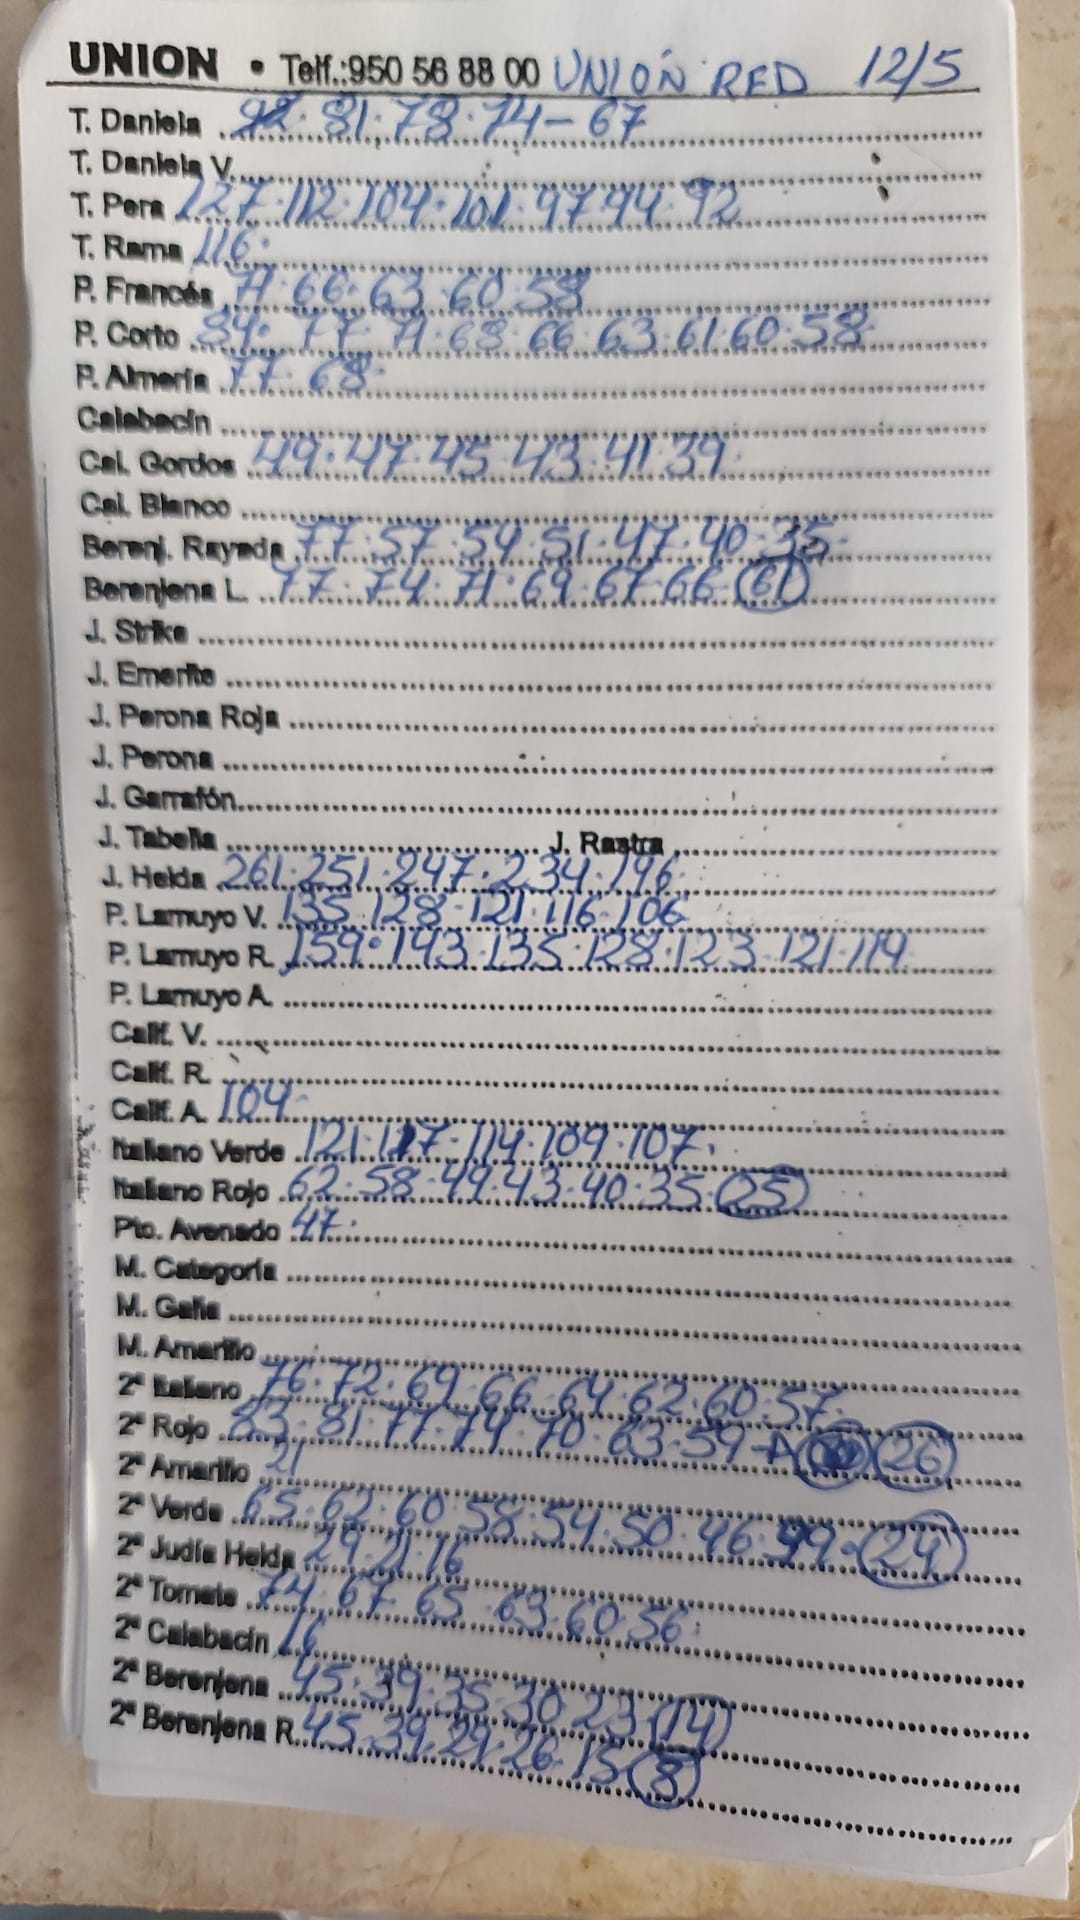 UNION • Telf.:950 56 88 00 UNIÓN RED 12/5
T. Daniela 92·81·78·74-67
T. Daniela V.
T. Pera 127·112·104·101·97·94·92
T. Rama 116·
P. Francés 71·66·63·60·58
P. Corto 84·77·71·68·66·63·61·60·58·
P. Almería 77·68·
Calabacín
Cal. Gordos 49·47·45·43·41·39·
Cal. Blanco
Berenj. Rayada 77·57·54·51·47·40·35·
Berenjena L. 77·74·71·69·67·66·61
J. Strike
J. Emerite
J. Perona Roja
J. Perona
J. Garrafón
J. Tabella J. Rastra
J. Helda 261·251·247·234·196·
P. Lamuyo V. 135·128·121·116·106
P. Lamuyo R. 159·143·135·128·123·121·114·
P. Lamuyo A.
Calif. V.
Calif. R.
Calif. A. 104·
Italiano Verde 121·117·114·109·107·
Italiano Rojo 62·58·49·43·40·35·25
Pto. Avenado 47·
M. Categoría
M. Galia
M. Amarillo
2ª Italiano 76·72·69·66·64·62·60·57·
2ª Rojo 83·81·77·74·70·63·59-A 26
2ª Amarillo 21
2ª Verde 65·62·60·58·54·50·46· 24
2ª Judía Helda 29·21·16
2ª Tomate 74·67·65·63·60·56·
2ª Calabacín 16
2ª Berenjena 45·39·35·30·23·14
2ª Berenjena R. 45·39·29·26·15 8